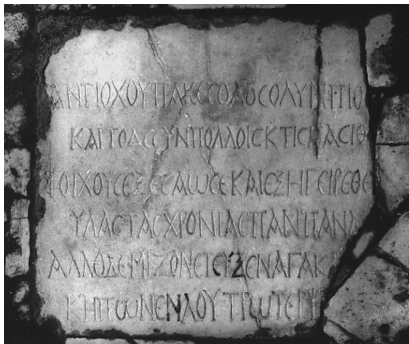 ΑΝΤΙΟΧΟΥΠΑΙϹϹΟΛΟϹΟΛΥΜΠΙΟ
ΚΑΙΤΟΔΕϹΥΝΠΟΛΛΟΙϹΚΤΙϹΜΑϹΙΘ
ΤΟΙΧΟΥϹΕΞΕϹΑΩϹΕΚΑΙΕΞΗΓΕΙΡΕΘΕ
ΥΛΑϹΤΑϹΧΡΟΝΙΑϹΠΑΝΠΑΝΑ
ΑΛΛΟΔΕΜΙΖΟΝΕΤΕΥΞΕΝΑΓΑΚ
ΚΗΠΩΝΕΝΛΟΥΤΡΩΤΕΡΨ